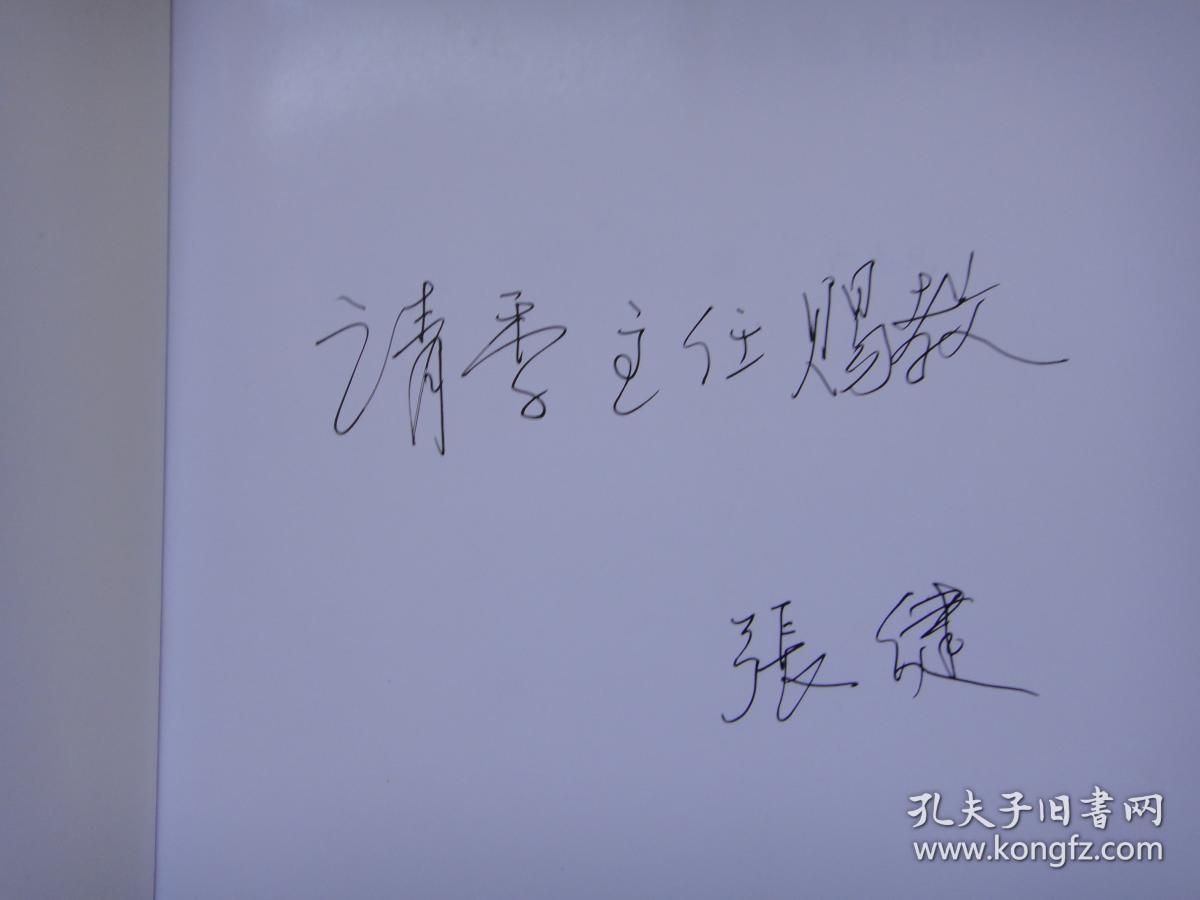 請李主任賜教
張健
孔夫子旧书网
www.kongfz.com